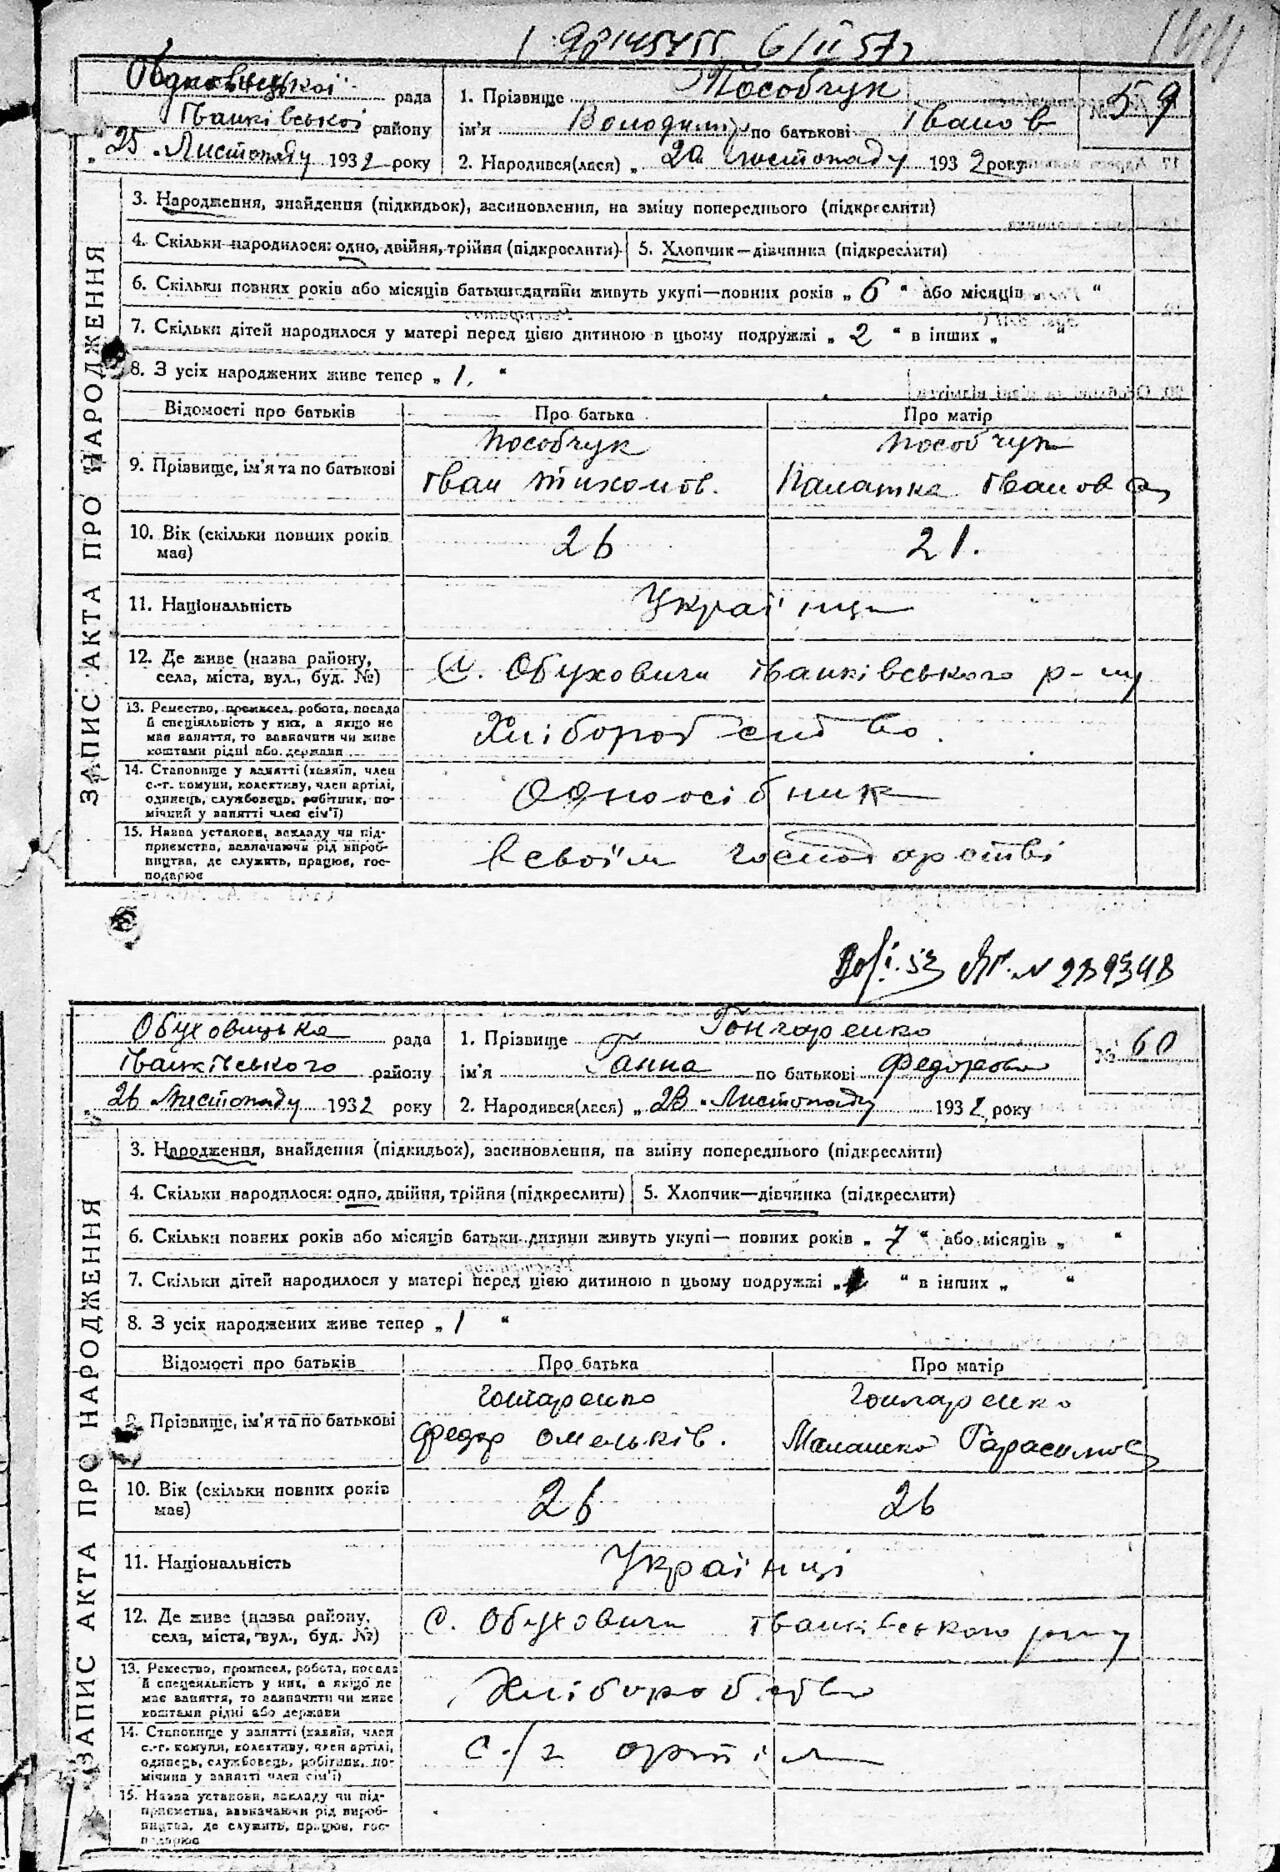 6/II 57 г
рада
району
„ 25 „ Листопаду 1932 року
1. Прізвище Пособчук
ім'я Володимир по батькові Іванов
2. Народився(лася) „ 20 листопаду 1932 року
№ 59
ЗАПИС АКТА ПРО НАРОДЖЕННЯ
3. Народження, знайдення (підкидьок), засиновлення, на зміну попереднього (підкреслити)
4. Скільки народилося: одно, двійня, трійня (підкреслити)
5. Хлопчик—дівчинка (підкреслити)
6. Скільки повних років або місяців батьки дитини живуть укупі—повних років „ 6 “ або місяців „ “
7. Скільки дітей народилося у матері перед цією дитиною в цьому подружжі „ 2 “ в інших „ “
8. З усіх народжених живе тепер „ 1, “
Відомості про батьків Про батька Про матір
9. Прізвище, ім'я та по батькові
Пособчук
Іван Тихонов.
Пособчук
Іванов
10. Вік (скільки повних років має)
26
21.
11. Національність
Українці
12. Де живе (назва району, села, міста, вул., буд. №)
С. Обуховичи Іванківського р-ну
13. Ремество, промисел, робота, посада
й спеціяльність у них, а якщо не
має заняття, то зазначити чи живе
коштами рідні або держави
Хліборобство.
14. Становище у занятті (хазяїн, член
с.-г. комуни, колективу, член артілі,
одинець, службовець, робітник, по-
мічний у занятті член сім'ї)
Одноосібник
15. Назва установи, закладу чи під-
приємства, зазначаючи рід вироб-
ництва, де служить, працює, гос-
подарює
в своїм господарстві
N 289348
Обуховицька рада
Іванківського району
„ 26 Листопаду 1932 року
1. Прізвище Гончаренко
ім'я Ганна по батькові Федоровн
2. Народився(лася) „ 23 „ Листопаду 1932 року
№ 60
ЗАПИС АКТА ПРО НАРОДЖЕННЯ
3. Народження, знайдення (підкидьок), засиновлення, на зміну попереднього (підкреслити)
4. Скільки народилося: одно, двійня, трійня (підкреслити)
5. Хлопчик—дівчинка (підкреслити)
6. Скільки повних років або місяців батьки дитини живуть укупі— повних років „ 7 “ або місяців „ “
7. Скільки дітей народилося у матері перед цією дитиною в цьому подружжі „ “ в інших „ “
8. З усіх народжених живе тепер „ 1 “
Відомості про батьків Про батька Про матір
9. Прізвище, ім'я та по батькові
Гончаренко
Федор Омельків.
Гончаренко
Малашка Гарасимов
10. Вік (скільки повних років має)
26
26
11. Національність
Українці
12. Де живе (назва району, села, міста, вул., буд. №)
С. Обуховичи Іванківського р-ну
13. Ремество, промисел, робота, посада
й спеціяльність у них, а якщо не
має заняття, то зазначити чи живе
коштами рідні або держави
Хліборобство
14. Становище у занятті (хазяїн, член
с.-г. комуни, колективу, член артілі,
одинець, службовець, робітник, по-
мічний у занятті член сім'ї)
с/г артіл
15. Назва установи, закладу чи під-
приємства, зазначаючи рід вироб-
ництва, де служить, працює, гос-
подарює